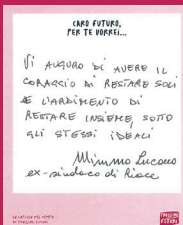 CARO FUTURO,
PER TE VORREI...
Vi AUGURO DI AVERE IL
CORAGGIO DI RESTARE SOLI
E L'ARDIMENTO DI
RESTARE INSIEME, SOTTO
GLI STESSI IDEALI
Mimmo Lucano
ex-sindaco di Riace